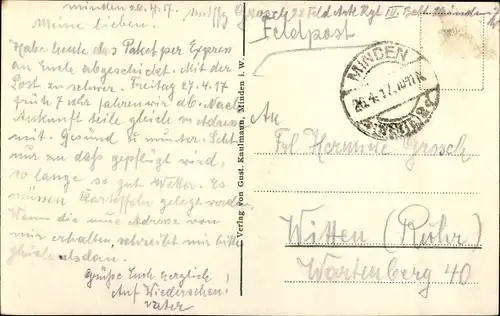 Minden 26.4.17.
Meine Lieben!
Habe heute das Paket per Express
an Euch abgeschickt. Mit der
Post zu schwer. Freitag 27.4.17
früh 7 Uhr fahren wir ab. Nach
Ankunft teile gleich Adresse
mit. Gesund & munter. Seht
nur zu daß gepflügt wird,
so lange so gut Wetter. Es
müssen Kartoffeln gelegt werden.
Wenn die neue Adresse von
mir erhalten, schreibt mir bitte
gleich alsdan.
Grüße Euch herzlich
Auf Wiedersehen
Vater
Verlag von Gust. Kaufmann, Minden i. W.
Grosch 22 Feld Art. Rgt III. Minden
Feldpost
MINDEN
26.4.17.10-11V.
An
Frl Hermine Grosch
Witten (Ruhr)
Wartenberg 40